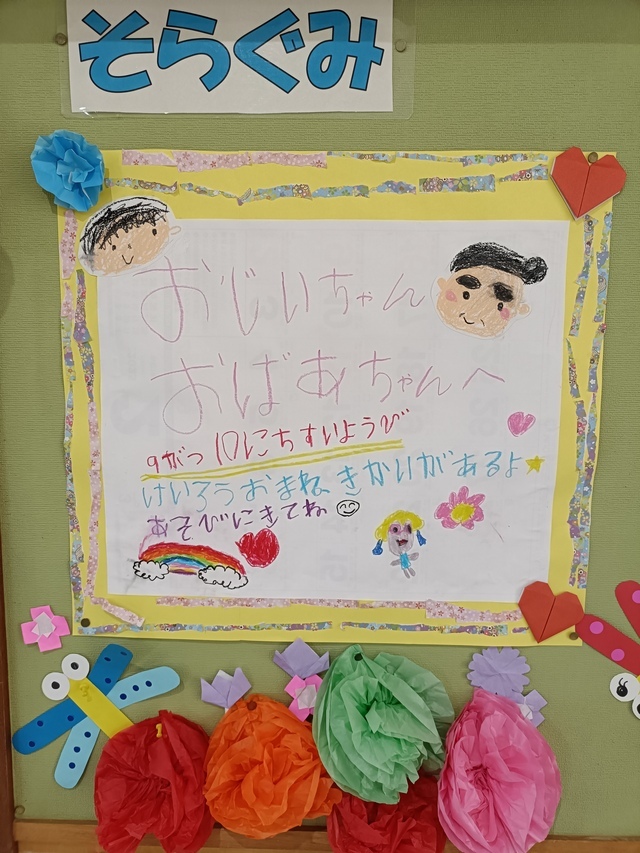 そらぐみ
おじいちゃん
おばあちゃんへ
9がつ10にちすいようび
けいろうおまねきかいがあるよ
あそびにきてね